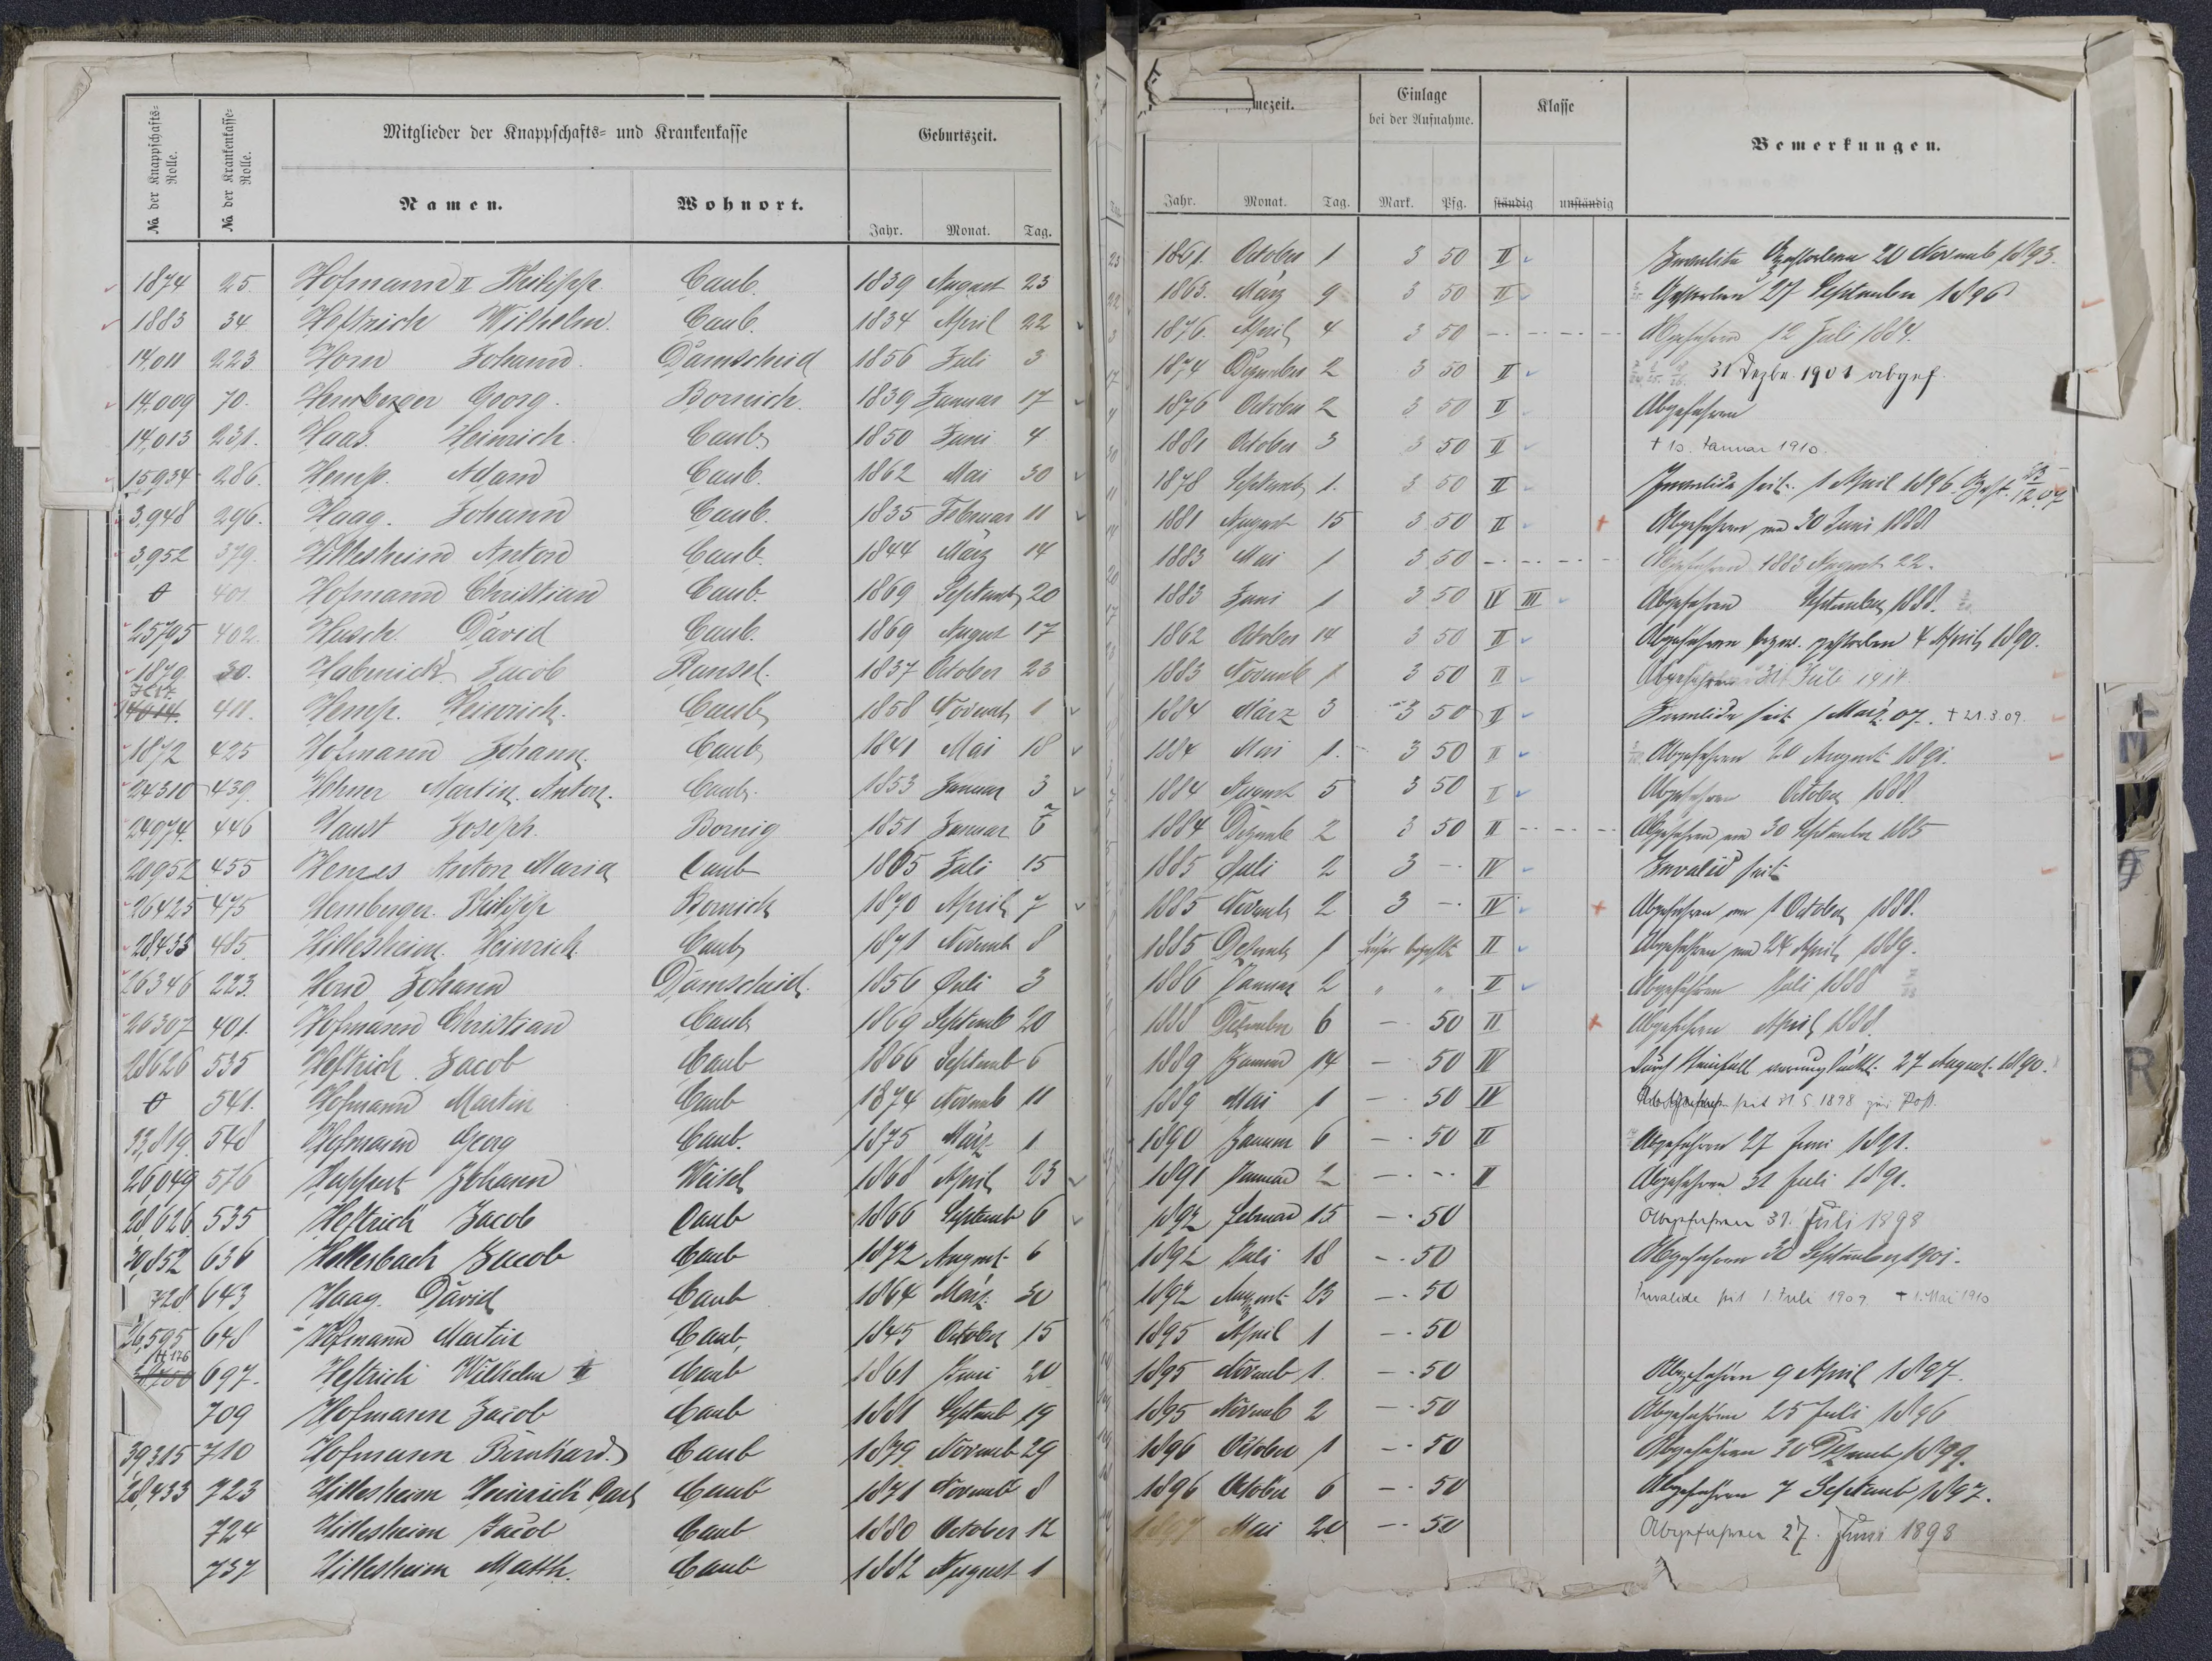 № der Knappschafts-Rolle.
№ der Krankenkasse-Rolle.
Mitglieder der Knappschafts- und Krankenkasse
Geburtszeit.
Namen. Wohnort. Jahr. Monat. Tag.
1874 25. Hofmann II Philipp. Caub. 1839 August 23
1883 34 Heftrich Wilhelm. Caub. 1834 April 22
14,011 223. Horn Johann. Damscheid 1856 Juli 3
14,009 70. Hemberger Georg. Bornich. 1839 Januar 17
14,013 231. Haas. Heinrich. Caub 1850 Juni 4
15,934 286. Hemp. Adam Caub. 1862 Mai 30
3,948 296. Haag. Johann Caub. 1835 Februar 11
3,952 379. Hillesheim Anton Caub. 1844 März 14
401. Hofmann Christian Caub. 1869 Septemb 20
25795 402. Hasch. David Caub. 1869 August 17
1879 30. Habenick Jacob Ransel. 1837 October 23
14014. 411. Hemp. Heinrich. Caub 1858 Novemb 1
1872 425 Hofmann Johann. Caub 1841 Mai 18
24310 439. Hohner Martin Anton. Caub. 1853 Januar 3
24974. 446 Haust Joseph. Bornig 1851 Januar
20952 455 Henzes Anton Maria Caub 1865 Juli 15
26425 475 Hemberger. Philipp Bornich 1870 April 7
28,433 485. Hillesheim. Heinrich. Caub 1871 Novemb 8
26346 223. Horn Johann Damscheid. 1856 Juli 3
26307 401. Hofmann Christian Caub 1869 Septemb 20
28626 535 Heftrich Jacob Caub 1866 Septemb 6
541. Hofmann Martin Caub 1874 Novemb 11
33,819. 548 Hofmann Georg Caub. 1875 März 1
26049 576 Happert Johann Weisel 1868 April 23
28,626. 535 Heftrich Jacob Caub 1866 Septemb 6
30,852 636 Hellesbach Jacob Caub 1872 August 6
728 643 Haag. David Caub 1864 März 30
26,595 648 Hofmann Martin Caub, 1845 October 15
697. Heftrich Wilhelm II Caub 1861 Juni 20
709 Hofmann Jacob Caub 1881 Septemb 19
39315 710 Hofmann Bernhard. Caub 1879 Novemb 29
28,433 723 Hillesheim Heinrich Carl Caub 1871 Novemb 8
724 Hillesheim Jacob Caub 1880 October 12
737 Hillesheim Matth. Caub 1882 August 1
mezeit.
Einlage bei der Aufnahme.
Klasse
Bemerkungen.
Jahr. Monat. Tag. Mark. Pfg. ständig unständig
1861. October 1 3 50 II Invalide Gestorben 20 Novemb 1893.
1863. März 9 3 50 II Gestorben 27 September 1896
1876. April 4 3 50 Abgefahren 12 Juli 1884.
1874 Dezember 2 3 50 II 31 Dezbr. 1901 abgef.
1876 October 2 3 50 II Abgefahren
1881 October 3 3 50 II † 10. Januar 1910.
1878 Septemb 1. 3 50 II Invalide seit 1 April 1896. Gest. 12.07
1881 August 15 3 50 II Abgefahren am 30 Juni 1888
1883 Mai 1 3 50 Abgefahren 1883 August 22.
1883 Juni 1 3 50 IV III Abgefahren September 1888.
1862 October 14 3 50 II Abgefahren bezw. gestorben 4 April 1890.
1883 Novemb 1 3 50 II Abgefahren 31 Juli 1914.
1884 März 3 3 50 II Invalide seit 1 März 07. † 21.3.09.
1884 Mai 1. 3 50 II Abgefahren 20 August 1891.
1884 August 5 3 50 II Abgefahren October 1888.
1884 Dezemb 2 3 50 II Abgefahren am 30 September 1885
1885 Juli 2 3 - IV Invalid seit
1885 Novemb 2 3 - IV Abgefahren am 1 October 1888.
1885 Dezemb 1 früher bezahlt II Abgefahren am 24 April 1889.
1886 Januar 2 " " II Abgefahren Juli 1888
1888 Dezember 6 - 50 II Abgefahren April 1888.
1889 Januar 14 - 50 IV Durch Steinfall verunglückt. 27 August 1890.
1889 Mai 1 - 50 IV seit 31 5. 1898 zur Post.
1890 Januar 6 - 50 II Abgefahren 27 Juni 1891.
1891 Januar 2 - - II Abgefahren 31 Juli 1891.
1892 Februar 15 - 50 Abgefahren 31. Juli 1898
1892 Juli 18 - 50 Abgefahren 30 September 1901.
1892 August 23 - 50 Invalide seit 1. Juli 1909 † 1. Mai 1910
1895 April 1 - 50
1895 Novemb 1. - 50 Abgefahren 9 April 1897.
1895 Novemb 2 - 50 Abgefahren 25 Juli 1896
1896 October 1 - 50 Abgefahren 30 Dezemb 1899.
1896 October 6 - 50 Abgefahren 7 Septemb 1897.
1897 Mai 20 - 50 Abgefahren 27. Juni 1898